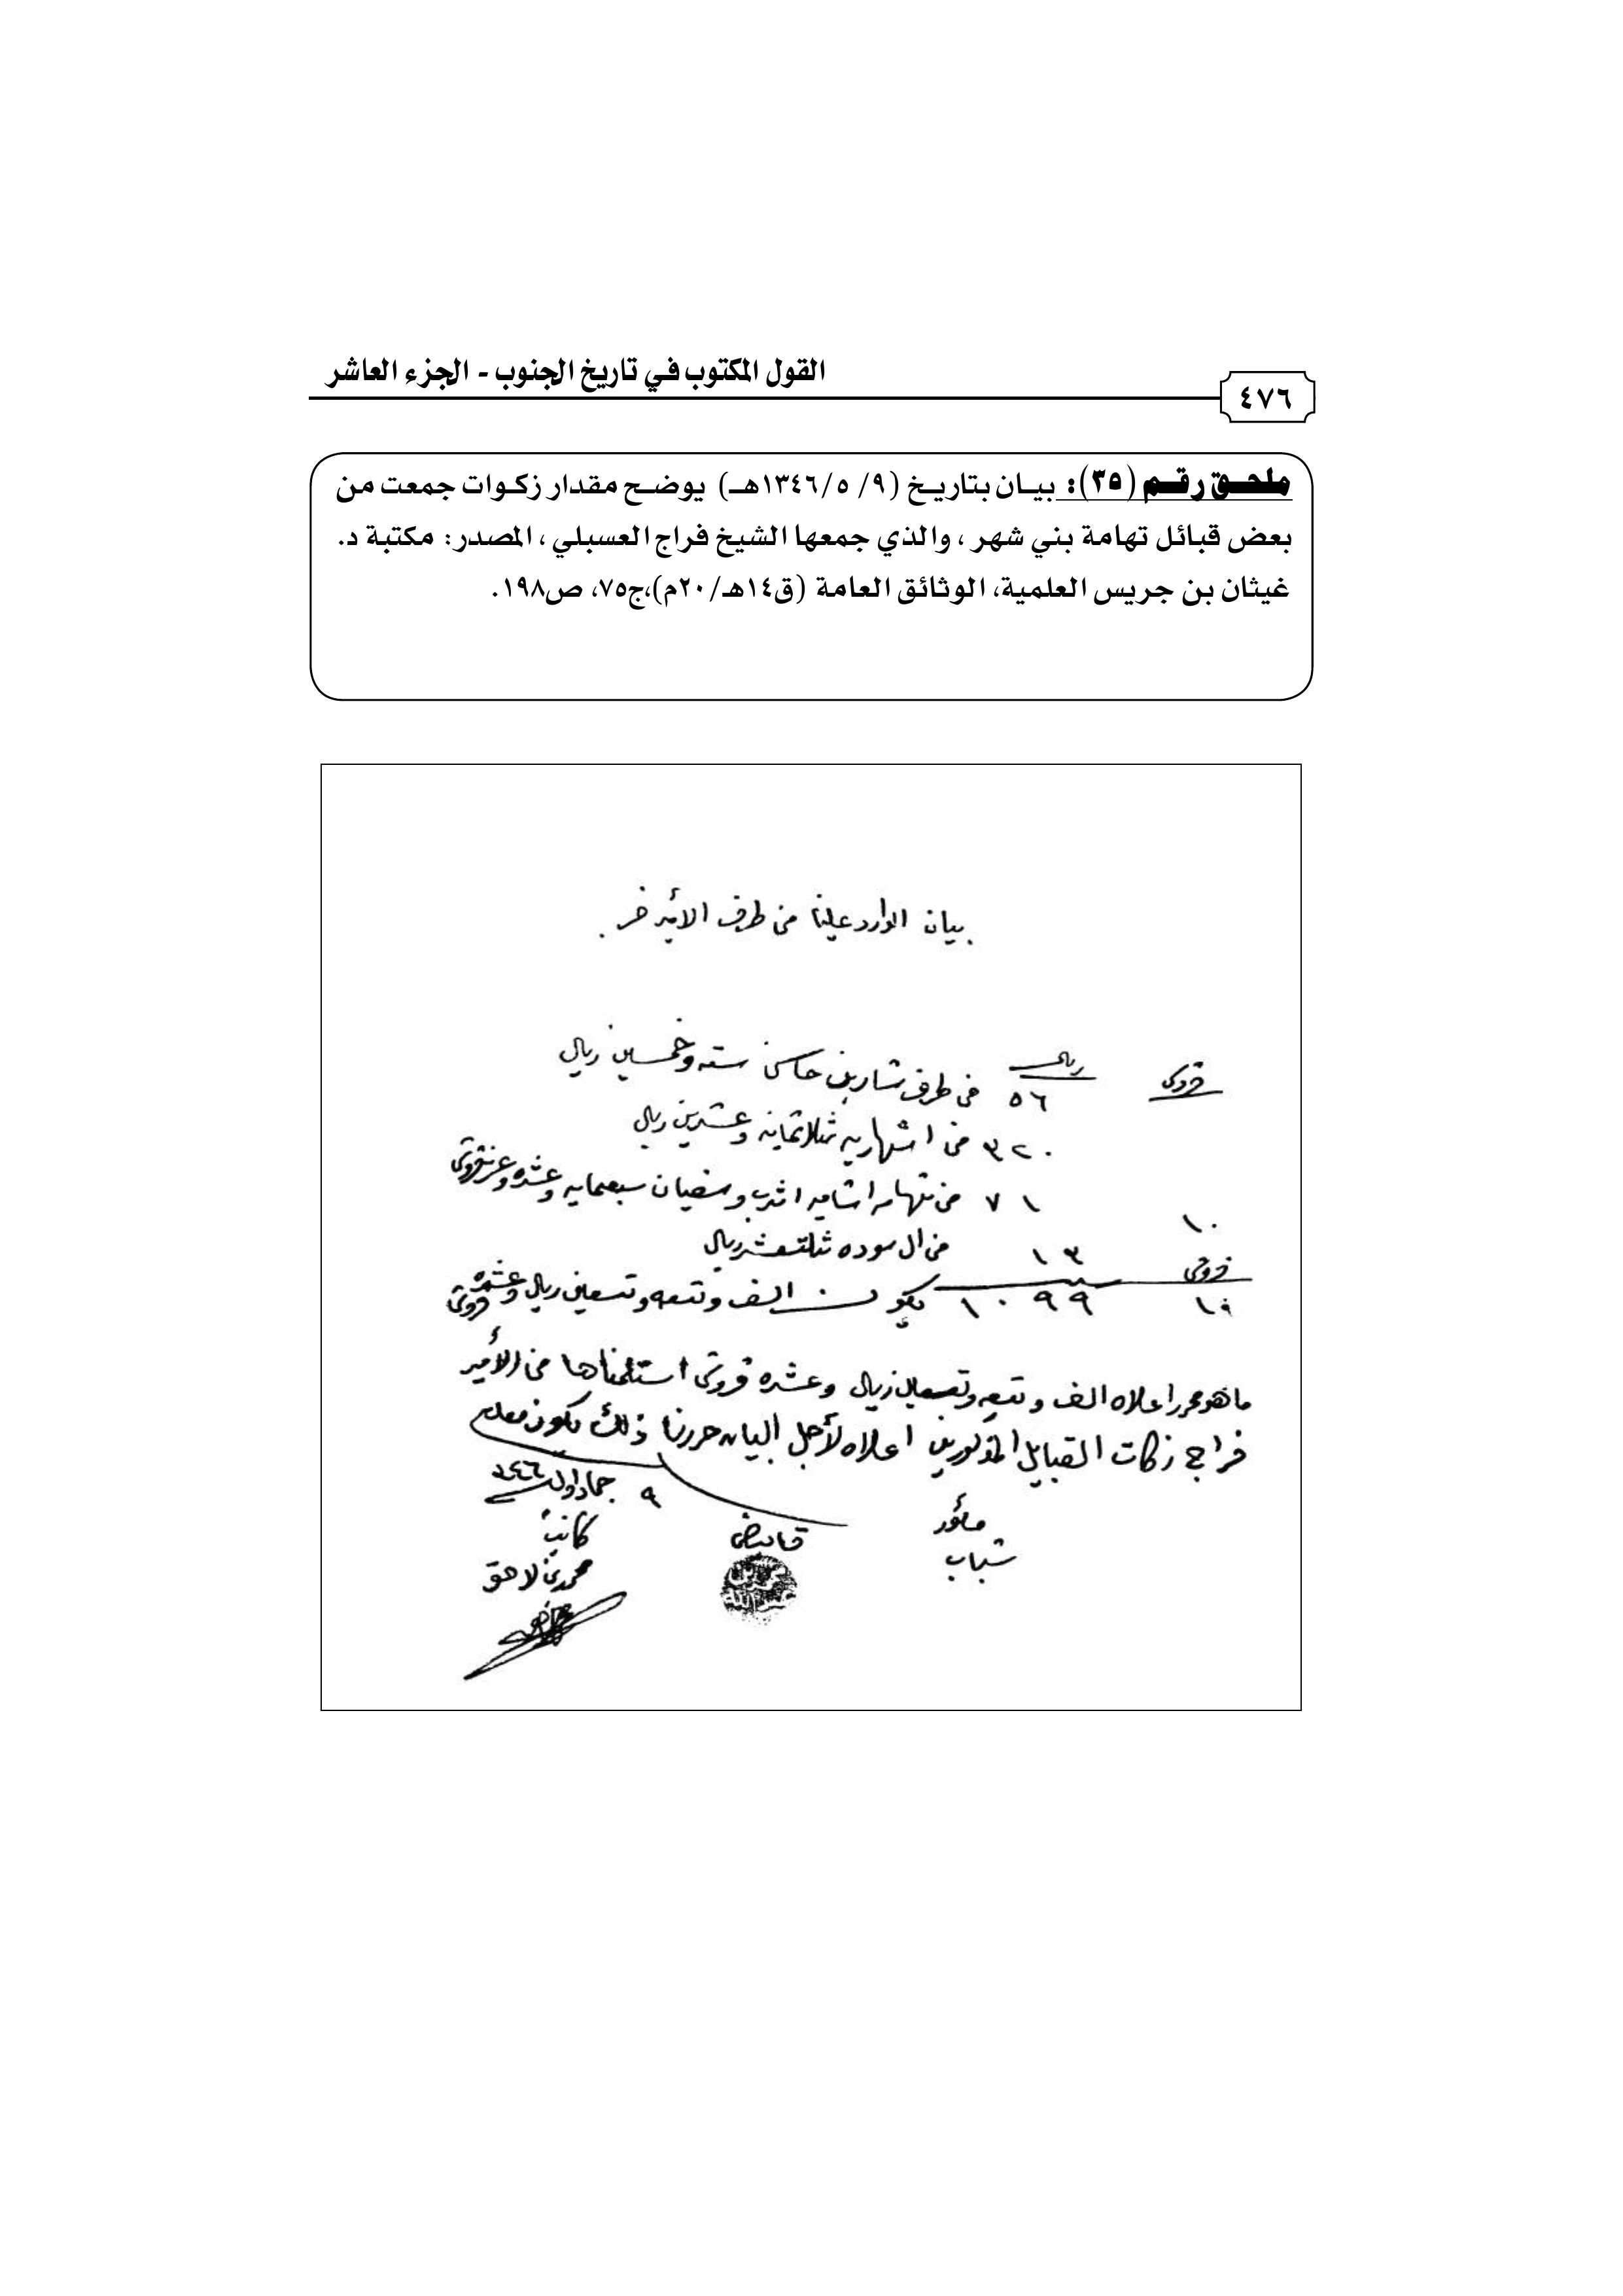 القول المكتوب في تاريخ الجنوب - الجزء العاشر
٤٧٦
ملحق رقم (٣٥): بيان بتاريخ (٩/ ٥ /١٣٤٦هـ) يوضح مقدار زكوات جمعت من
بعض قبائل تهامة بني شهر ، والذي جمعها الشيخ فراج العسبلي ، المصدر: مكتبة د.
غيثان بن جريس العلمية، الوثائق العامة (ق١٤هـ/٢٠م)،ج٧٥، ص١٩٨.
بيان الوارد علينا من طرف الأمير
قروش ريال
٥٦ من طرف خاسن سته وخمسين ريال
٣٢٠ من شهاريه ثلاثمايه وعشرين ريال
٧١ من تهامه اشاميه اثرب و سبعمايه وعشره
١٠
١٣ من ال سوده ثلثعشر ريال
قروش
١٠ ١٠٩٩ يكون الف وتسعه وتسعين ريال وعشره قروش
ما هو محرر اعلاه الف وتسعه وتسعين ريال وعشره قروش استلمناها من الأمير
فراج زكات القبايل المذكورين اعلاه لأجل البيان حررنا ذلك يكون معلوم
٩ جماد اول
مأمور
شباب
قابض
كاتب
محمد بن لاحق